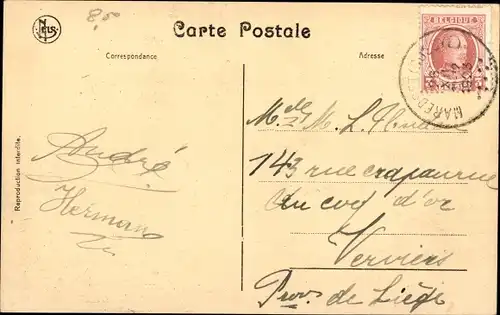 8,50
NELS
Carte Postale
Correspondance
Adresse
BELGIQUE
MARED
Reproduction interdite.
André
Herman
Melle M. L.
143 rue Crapaurue
Au coq d'or
Verviers
Prov. de Liège